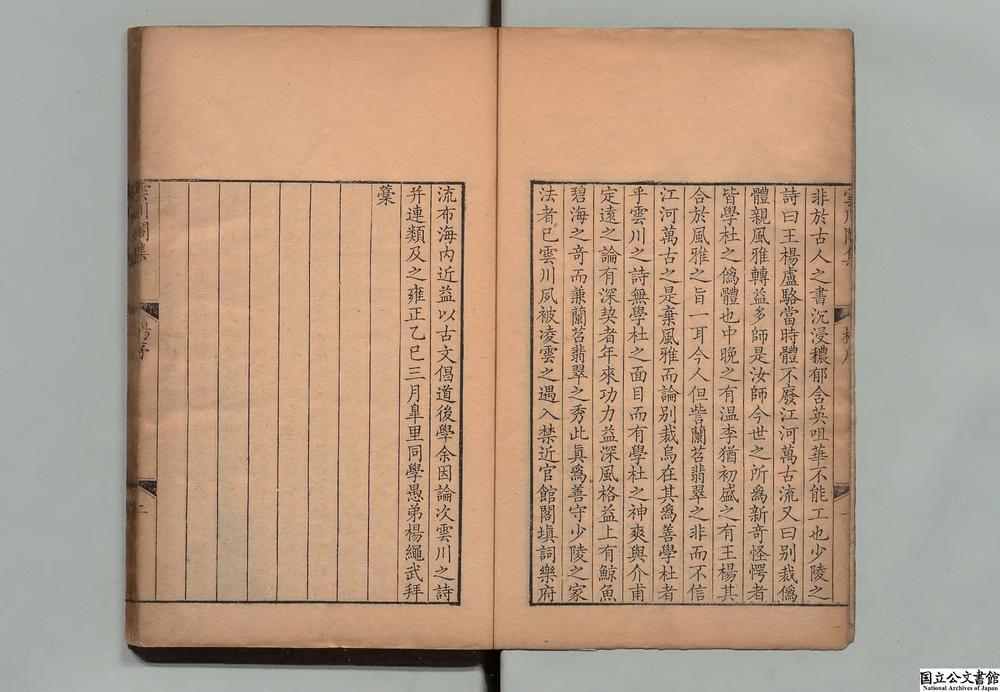 非於古人之書沉浸穠郁含英咀華不能工也少陵之
詩曰王楊盧駱當時體不廢江河萬古流又曰别裁僞
體親風雅轉益多師是汝師今世之所爲新奇怪愕者
皆學杜之僞體也中晚之有温李猶初盛之有王楊其
合於風雅之旨一耳今人但訾蘭苕翡翠之非而不信
江河萬古之是棄風雅而論别裁烏在其爲善學杜者
乎雲川之詩無學杜之面目而有學杜之神爽與介甫
定遠之論有深契者年來功力益深風格益上有鯨魚
碧海之奇而兼蘭苕翡翠之秀此眞爲善守少陵之家
法者已雲川夙被凌雲之遇入禁近官館閣塡詞樂府
流布海内近益以古文倡道後學余因論次雲川之詩
并連類及之雍正乙巳三月臯里同學愚弟楊繩武拜
藁
雲川閣集
楊序
二
国立公文書館
National Archives of Japan